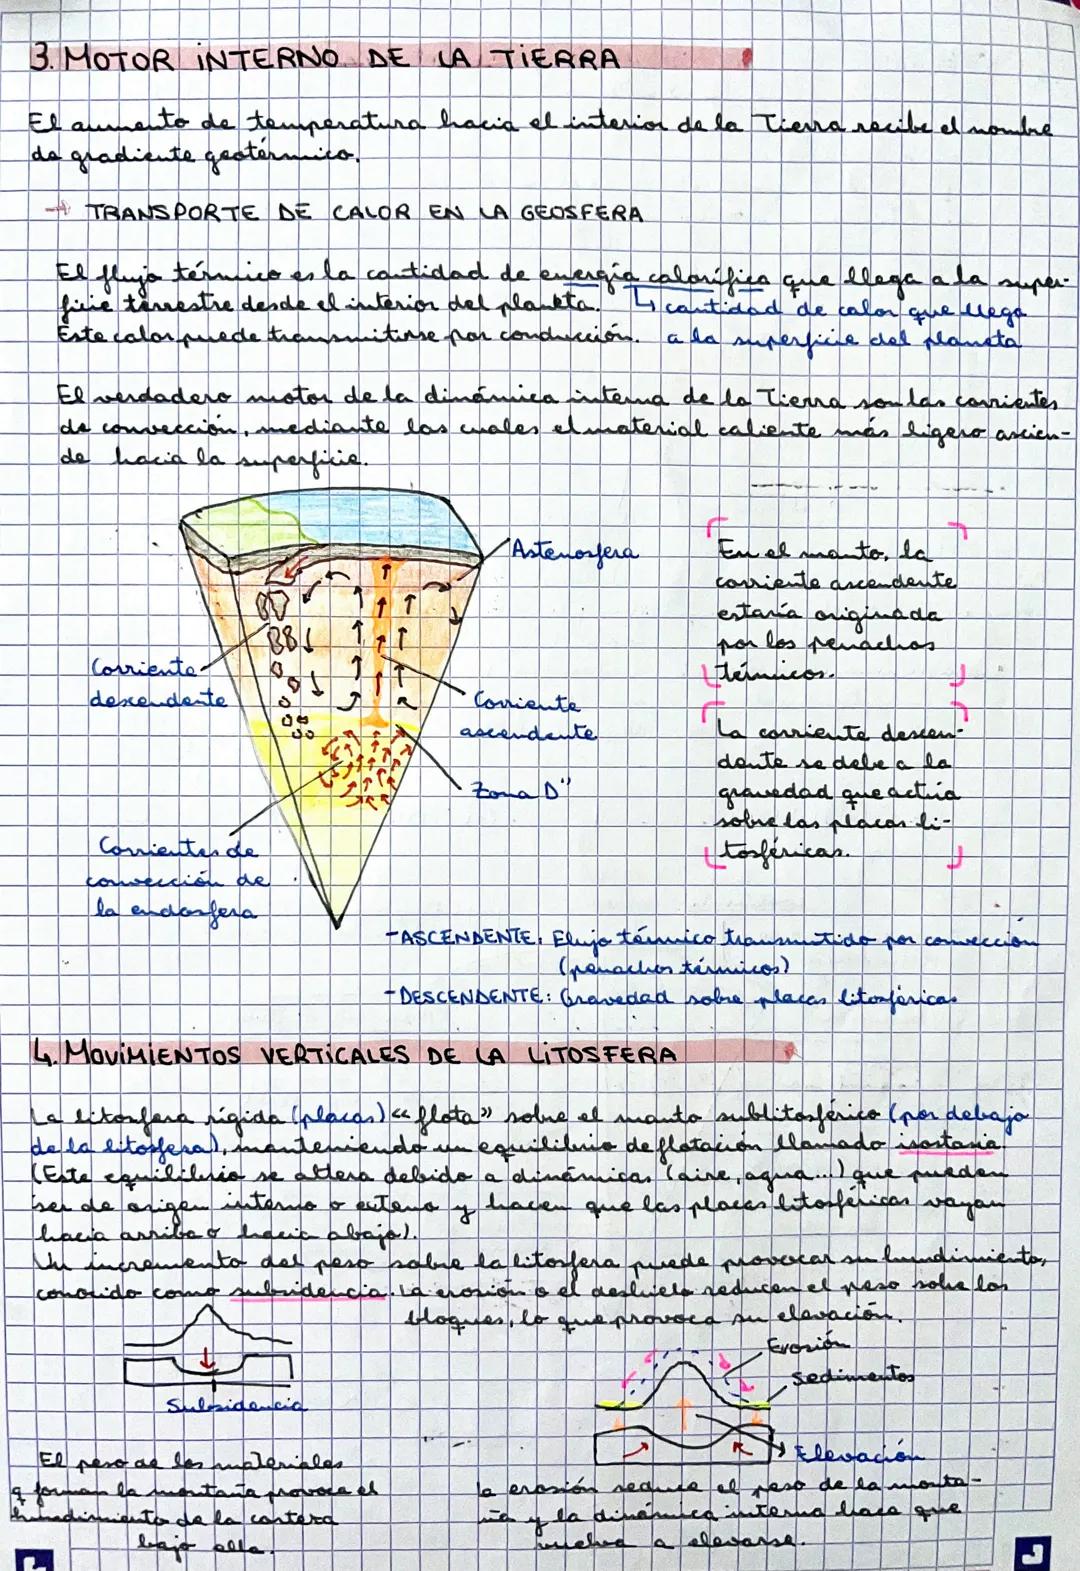 3. MOTOR INTERNO DE LA TIERRA
El aumento de temperatura hacia el interior de la Tierra recibe el nombre
de gradiente geotérmico.
→ TRANSPORTE DE CALOR EN LA GEOSFERA
El flujo térmico es la cantidad de energía calorífica que llega a la super-
ficie terrestre desde el interior del planeta. ↳ cantidad de calor que llega
Este calor puede transmitirse por conducción. a la superficie del planeta
El verdadero motor de la dinámica interna de la Tierra son las corrientes
de convección, mediante las cuales el material caliente más ligero ascien-
de hacia la superficie.
Astenosfera
Corriente
descendente
Corriente
ascendente
Zona D"
Corrientes de
convección de
la endosfera
En el manto, la
corriente ascendente
estaría originada
por los penachos
térmicos.
La corriente descen-
dente se debe a la
gravedad que actúa
sobre las placas li-
tosféricas.
-ASCENDENTE: Flujo térmico transmitido por convección
(penachos térmicos)
-DESCENDENTE: Gravedad sobre placas litosféricas
4. MOVIMIENTOS VERTICALES DE LA LITOSFERA
La litosfera rígida (placas) «flota» sobre el manto sublitosférico (por debajo
de la litosfera), manteniendo un equilibrio de flotación llamado isostasia.
(Este equilibrio se altera debido a dinámicas (aire, agua...) que pueden
ser de origen interno o externo y hacen que las placas litosféricas vayan
hacia arriba o hacia abajo).
Un incremento del peso sobre la litosfera puede provocar su hundimiento,
conocido como subsidencia. La erosión o el deshielo reducen el peso sobre los
bloques, lo que provoca su elevación.
Subsidencia
El peso de los materiales
q forman la montaña provoca el
hundimiento de la corteza
bajo ella.
Erosión
Sedimentos
Elevación
La erosión reduce el peso de la monta-
ña y la dinámica interna hace que
vuelva a elevarse.